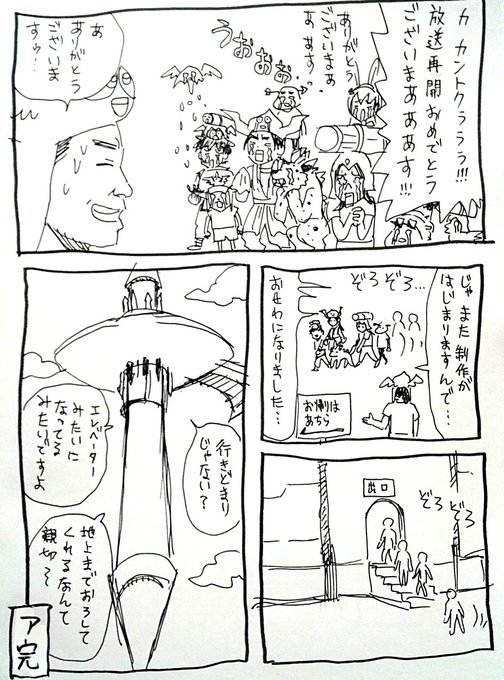 カ カントクラララ!!!
放送再開おめでとう
ございまあああす!!!
ありがとう
ございまあ
あす
うおおおお
あ
ありがとう
ございま
すぅ…
じゃ また 制作が
はじまりますんで…
ぞろ ぞろ…
おせわになりました…
お帰りは
あちら
出口
ぞろ
ぞろ
行きどまり
じゃない?
エレベーター
みたいに
なってる
みたいですよ
地上までおろして
くれるなんて
親切〜
ア完